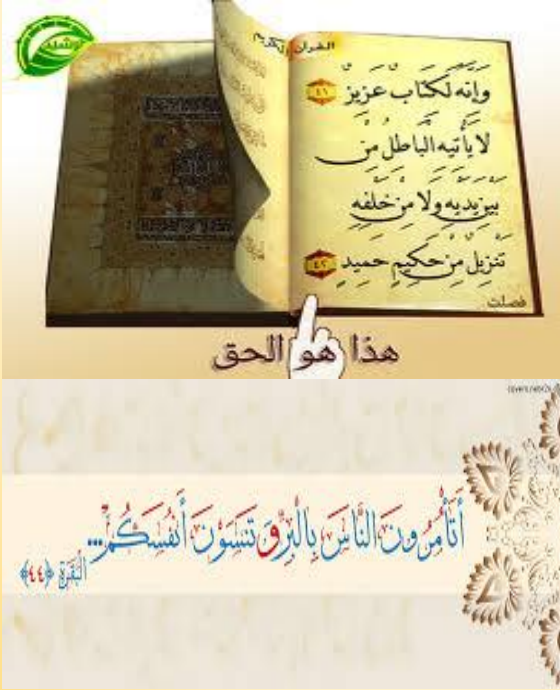 القرآن الكريم
وَإِنَّهُ لَكِتَابٌ عَزِيزٌ ٤١
لَا يَأْتِيهِ الْبَاطِلُ مِن
بَيْنِ يَدَيْهِ وَلَا مِنْ خَلْفِهِ
تَنزِيلٌ مِّنْ حَكِيمٍ حَمِيدٍ ٤٢
فصلت
هذا هو الحق
أَتَأْمُرُونَ النَّاسَ بِالْبِرِّ وَتَنسَوْنَ أَنفُسَكُمْ...
الْبَقَرَةِ ﴿٤٤﴾